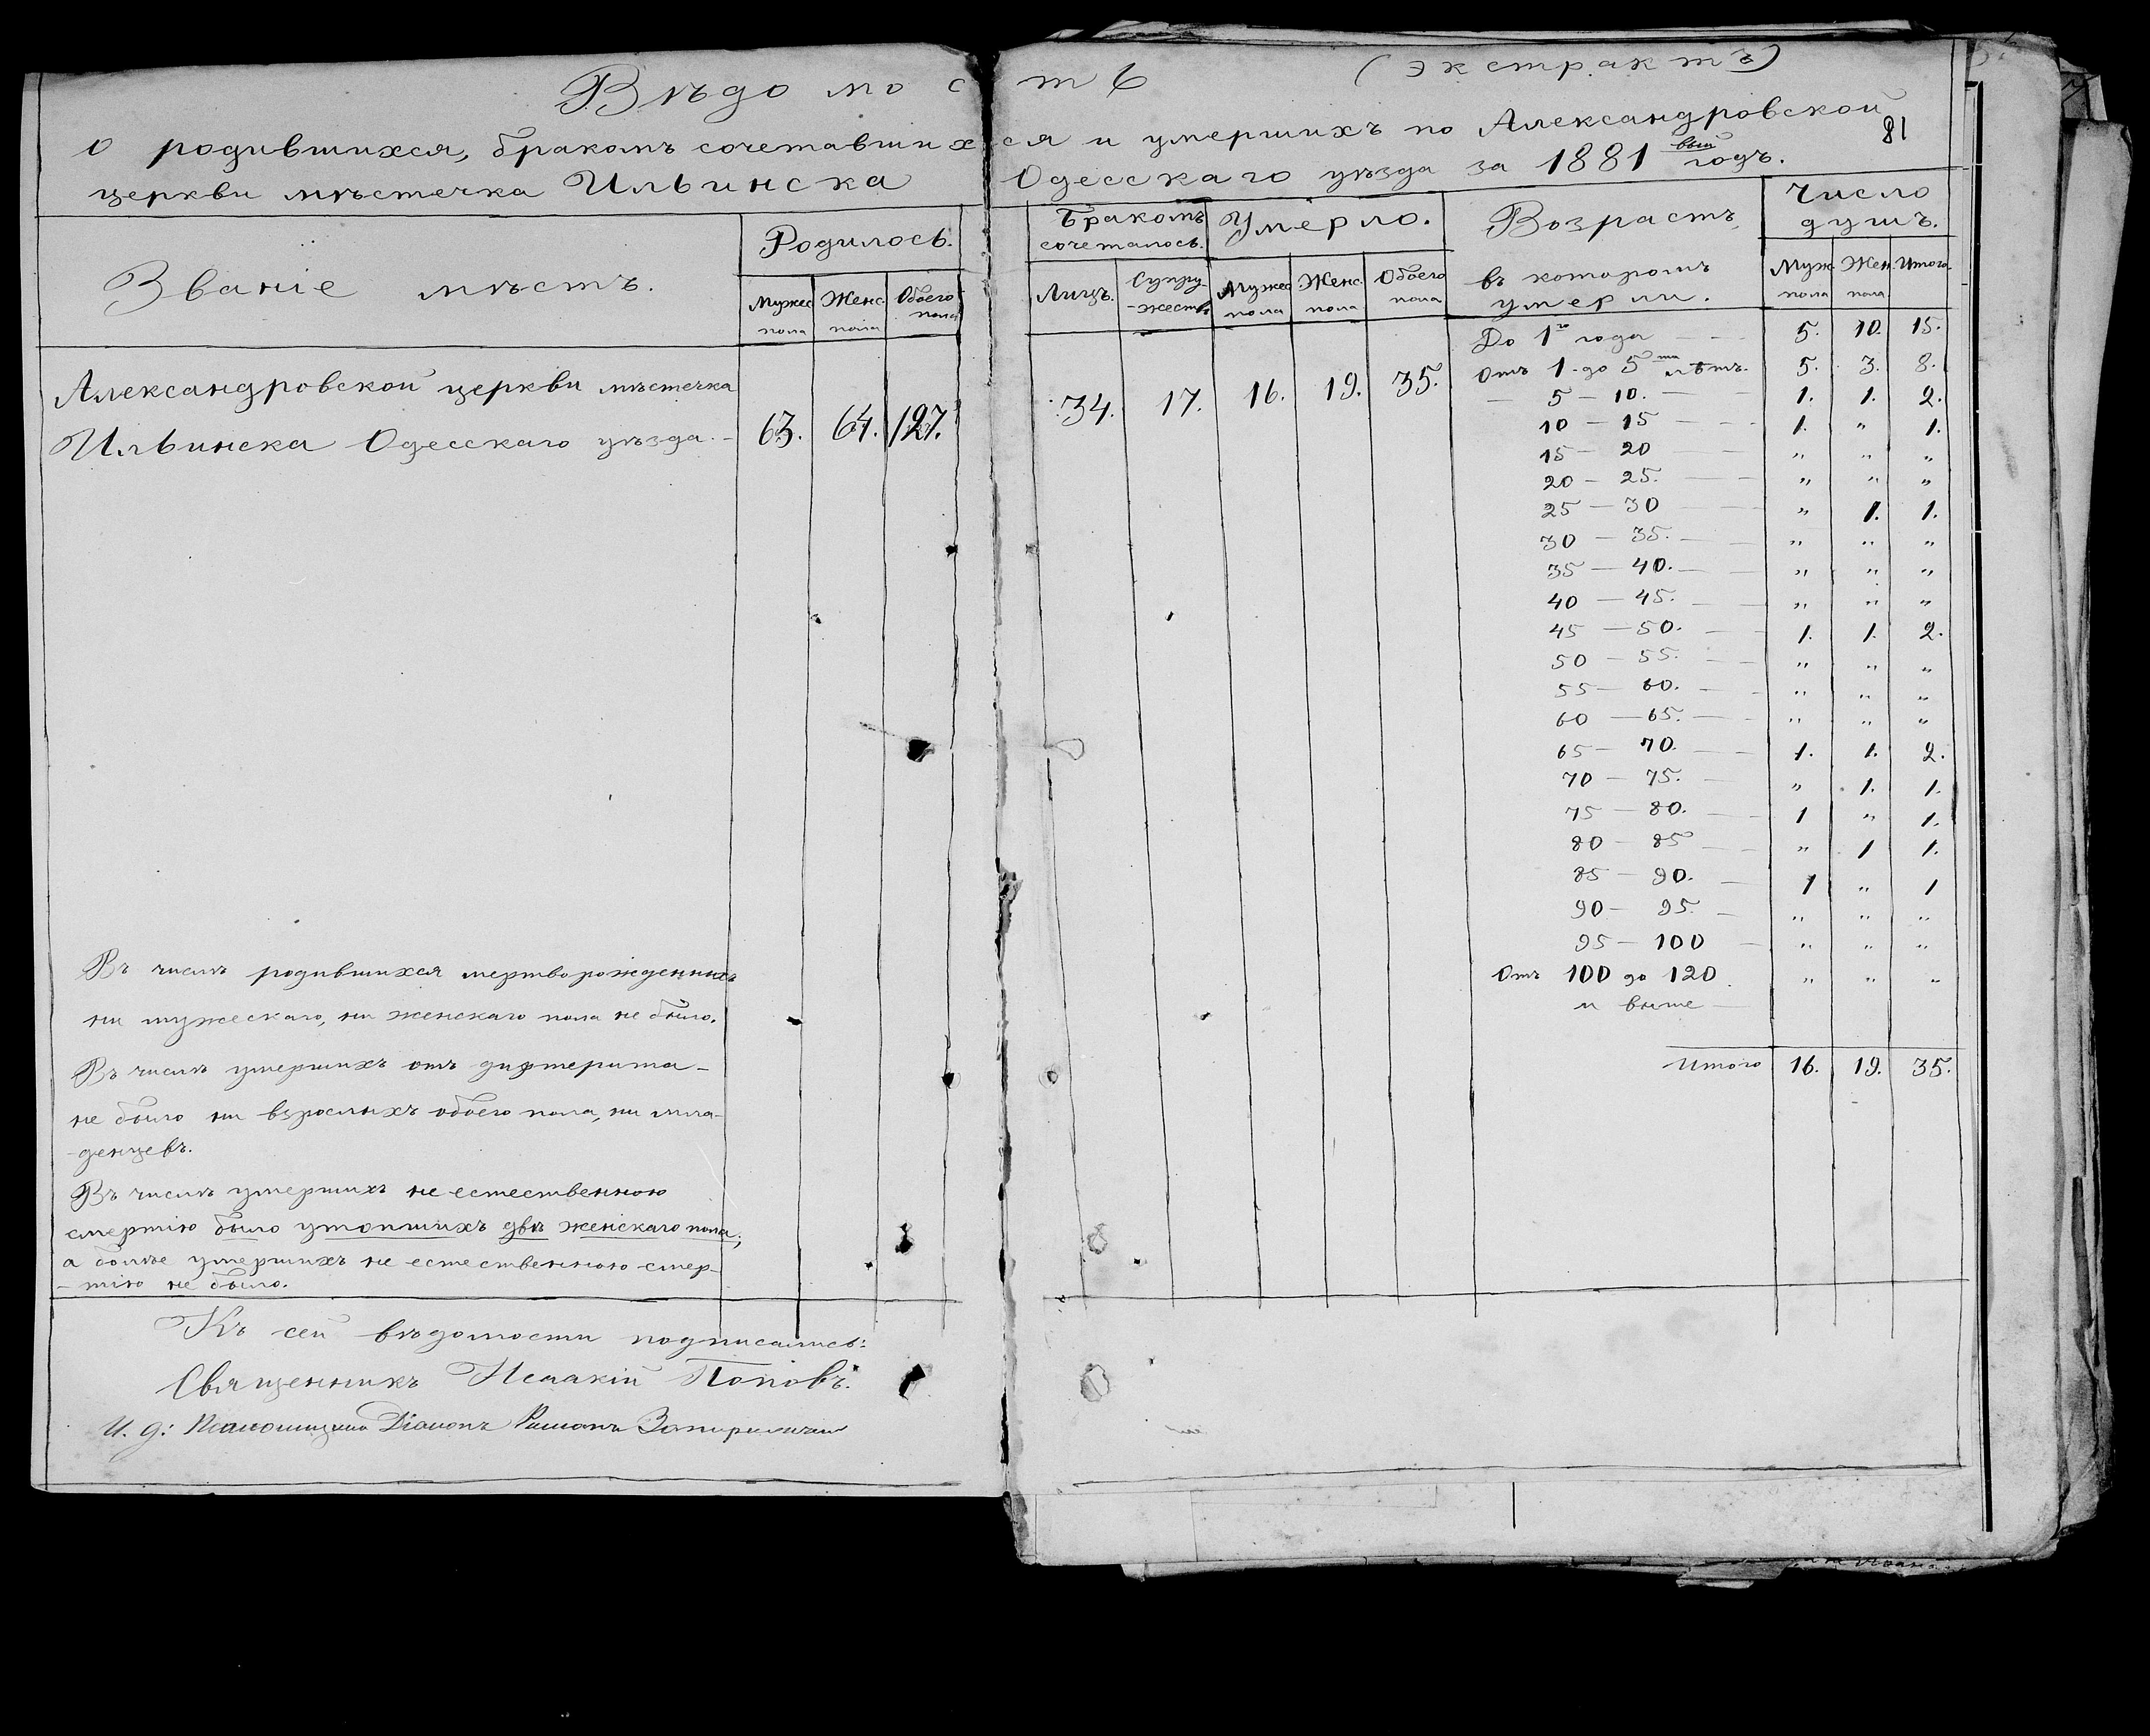 Вѣдомость (Экстрактъ)
о родившихся, бракомъ сочетавшихся и умершихъ по Александровской
81
церкви мѣстечка Ильинска Одесскаго уѣзда за 1881вый годъ.
Званіе мѣстъ. Родилось. Бракомъ сочеталось. Умерло. Возрастъ, въ которомъ умерли. Число душъ.
Мужес пола Женс. пола Обоего пола Лицъ. Супру-жествъ Мужес пола Женс. пола Обоего пола Муж. пола Жен. пола Итого.
Александровской церкви мѣстечка
Ильинска Одесскаго уѣзда. – 63. 64. 127. 34. 17. 16. 19. 35.
До 1го года — 5. 10. 15.
Отъ 1. до 5ти лѣтъ. 5. 3. 8.
— 5 – 10. — 1. 1. 2.
10 – 15 — 1. „ 1.
15 – 20 — „ „ „
20 – 25. — „ „ „
25 – 30 — „ 1. 1.
30 – 35. — „ „ „
35 – 40. — „ „ „
40 – 45. — „ „ „
45 – 50. — 1. 1. 2.
50 – 55. — „ „ „
55 – 60. — „ „ „
60 – 65. — „ „ „
65 – 70. — 1. 1. 2.
70 – 75. — „ 1. 1.
75 – 80. — 1 „ 1.
80 – 85 — „ 1 1.
85 – 90. — 1 „ 1
90 – 95. — „ „ „
95 – 100 — „ „ „
Отъ 100 до 120 „ „ „
и выше —
Итого 16. 19. 35.
Въ числѣ родившихся мертворожденныхъ
ни мужескаго, ни женскаго пола не было.
Въ числѣ умершихъ отъ дифтерита –
не было ни взрослыхъ обоего пола, ни мла-
-денцевъ.
Въ числѣ умершихъ не естественною
смертію было утопшихъ двѣ женскаго пола;
а болѣе умершихъ не естественною смер-
-тію не было.
Къ сей вѣдомости подписались:
Священникъ Исаакій Поповъ.
И. д: Псаломщика Діаконъ Романъ